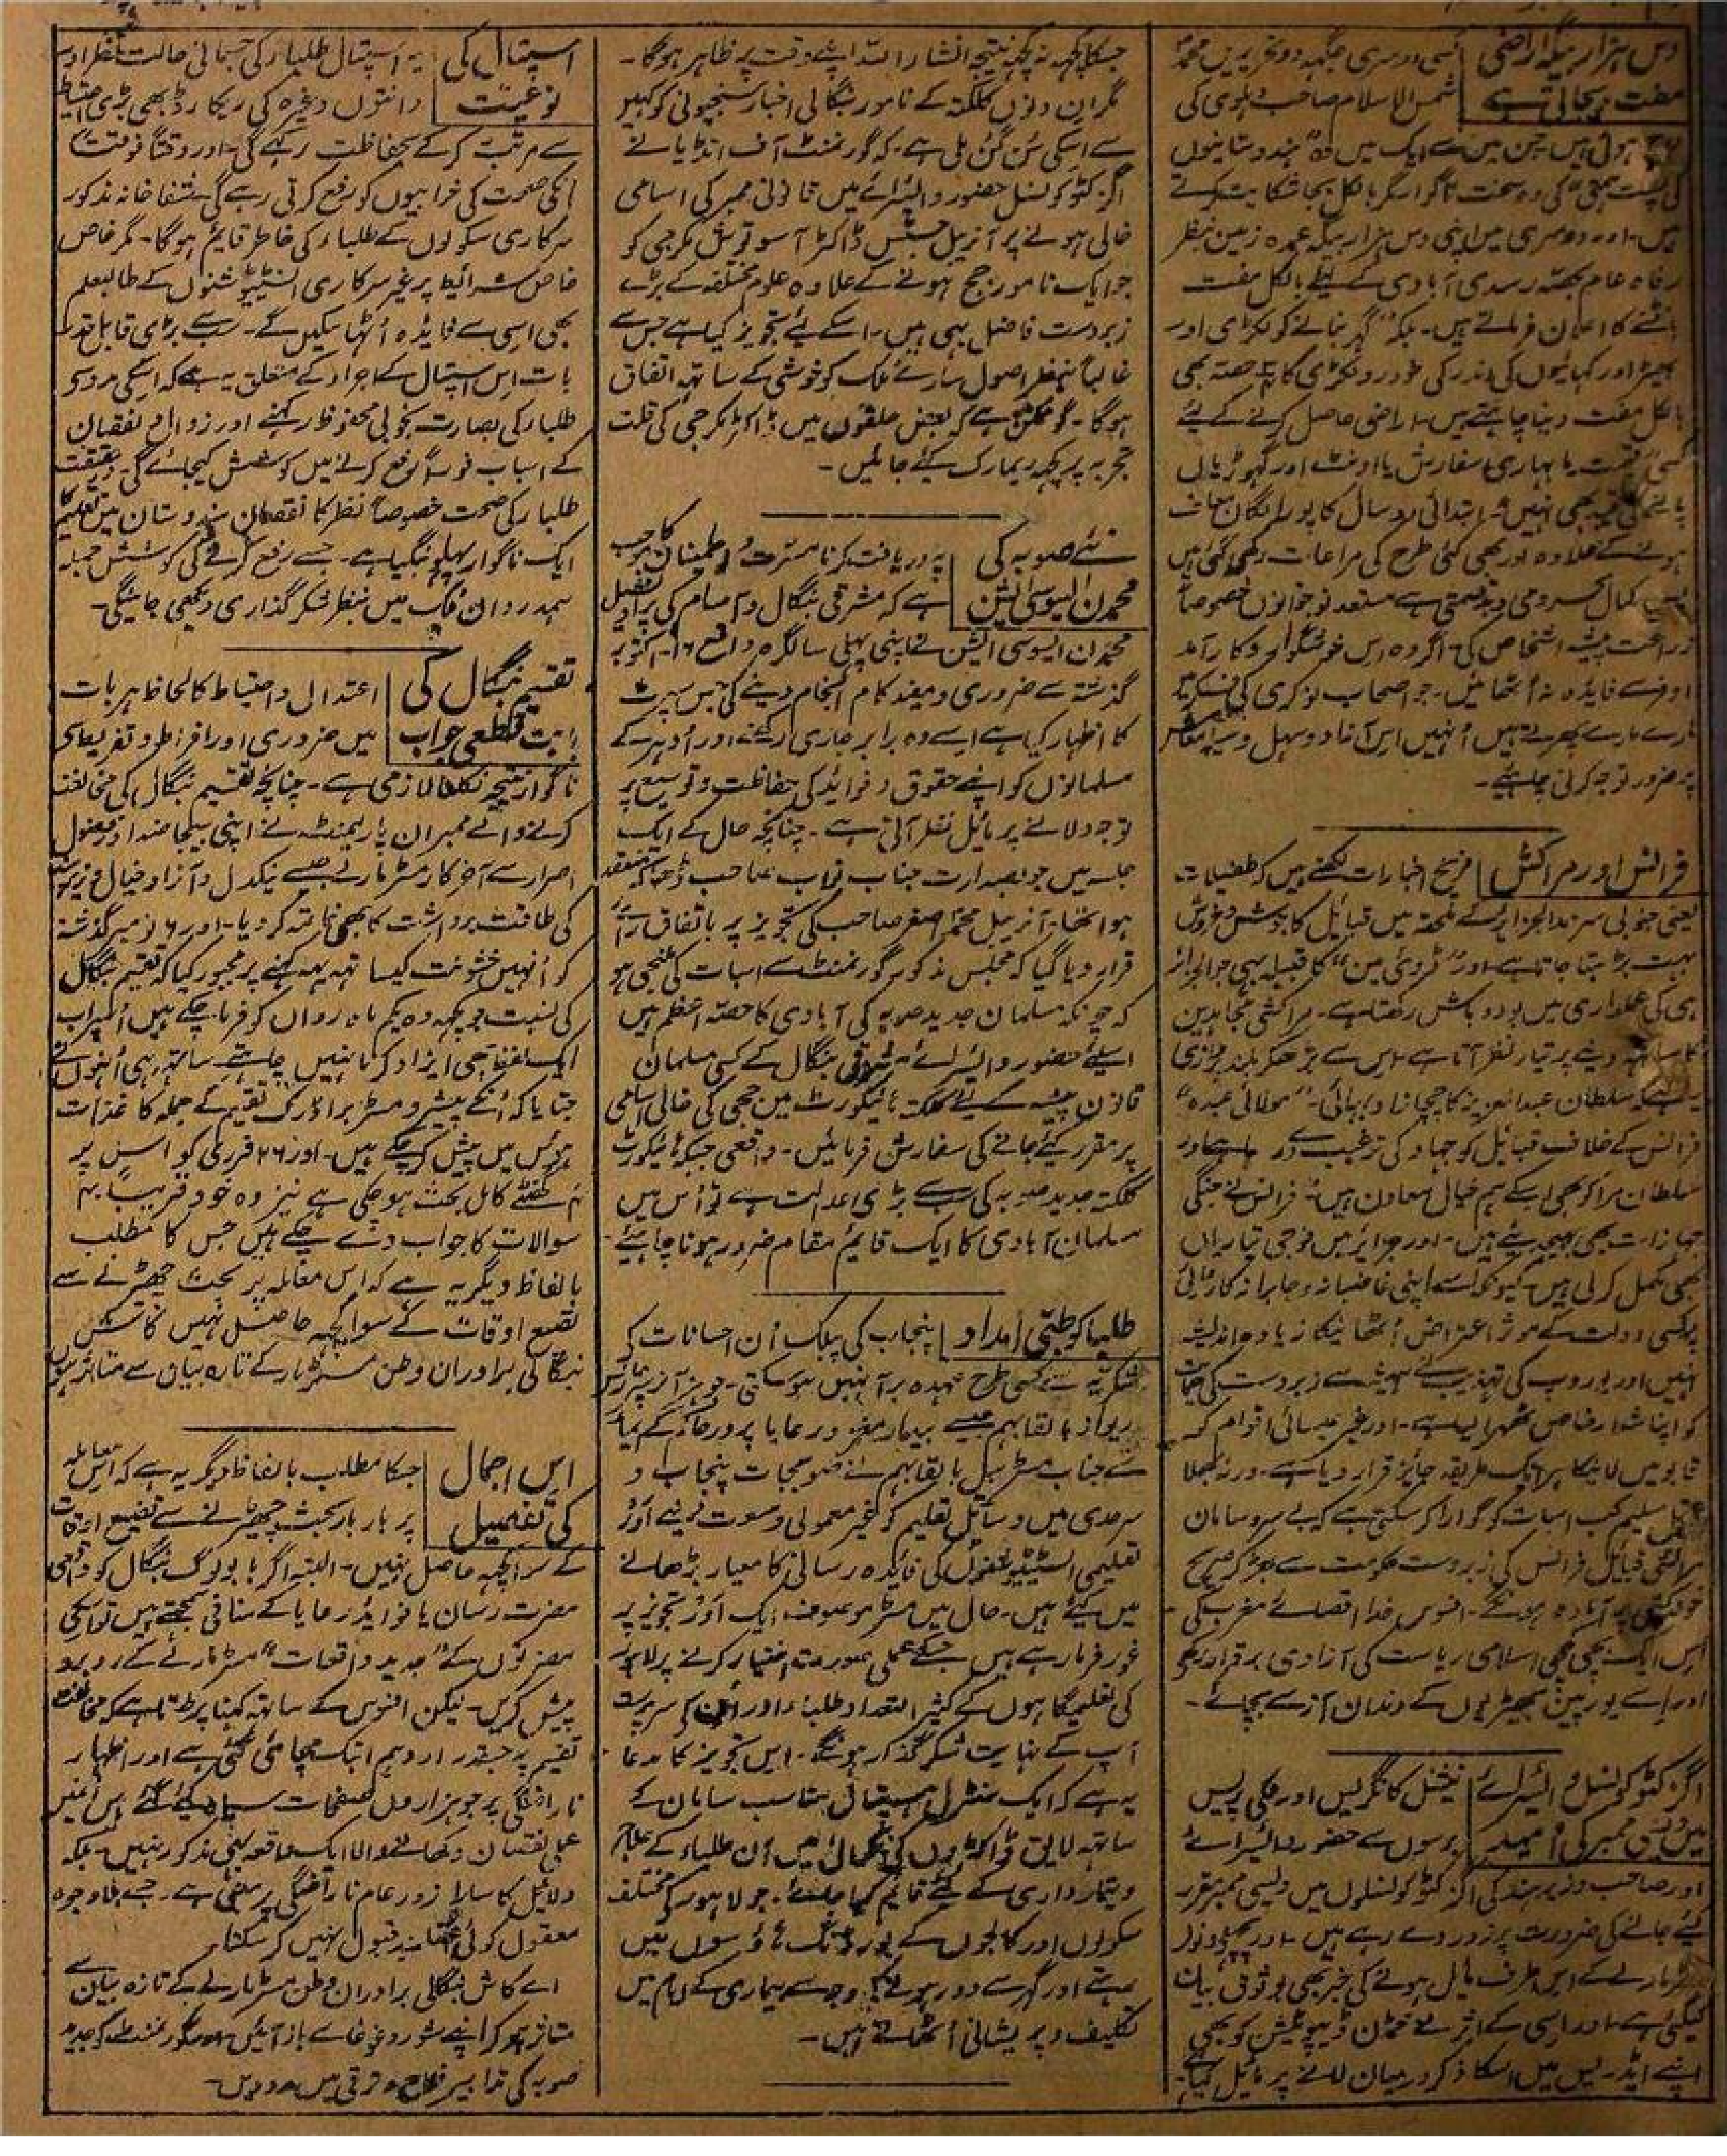 دس ہزار بیگہ اراضی
مفت دیجاتی ہے
کسی دوسری جگہہ دو تحریریں محمد
شمس الاسلام صاحب دہلوی کی
ہوئی ہیں جن میں سے ایک میں وہ ہندوستانیوں
کی پست ہمتی کی وہ سخت ناگوار مگر بالکل بجا شکایت کرتے
ہیں۔ اور دوسری میں اپنی دس ہزار بیگہ عمدہ زمین بنظر
رفاہ عام بحصہ رسدی آبادی کے لیے بالکل مفت
بانٹنے کا اعلان فرماتے ہیں۔ بلکہ گہر بنانے کو لکڑی اور
کی خودرو لکڑی کا حصہ بھی
بالکل مفت دینا چاہتے ہیں۔ اراضی حاصل کرنے کے لیئے
کسی قیمت یا بہاری سفارش یا اونٹ اور گہوڑا پال
بھی نہیں ابتدائی دو سال کا پورا لگان معاف
ہونے کے علاوہ اور بھی کئی طرح کی مراعات رکھی گئی ہیں
کمال محرومی و بدقسمتی ہے مستعد نوجوانوں خصوصاً
زراعت پیشہ اشخاص کی اگر وہ اس خوشگوار و کارآمد
اوفر سے فایدہ نہ اُٹھائیں۔ جو اصحاب نوکری کی فکر میں
مارے مارے پھرتے ہیں اُنہیں اس آزاد و سہل وسیلہ معاش
پر ضرور توجہ کرنی چاہیئے۔
فرانس اور مراکش
فرنچ اخبارات لکھتے ہیں کہ
یعنی جنوبی سرحد الجزائر کے ملحقہ میں قبائل کا جوش و خروش
بہت بڑہتا جاتا ہے اور کا قبیلہ بھی جو الجزائر
ہی کی عملداری میں بود و باش رکھتا ہے۔ مراکشی مجاہدین
کا ساتھ دینے پر تیار نظر آتا ہے اس سے بڑھکر بلند پروازی
یہ ہے کہ سلطان عبد العزیز کا چچا زاد بہائی۔ "مولائی عبدہ"
فرانس کے خلاف قبائل کو جہاد کی ترغیب دے رہا ہے اور
سلطان مراکو بھی اسکے ہم خیال معاون ہیں۔ فرانس نے جنگی
جہازات بھی بھیجدیئے ہیں۔ اور جزایر میں فوجی تیاریاں
بھی مکمل کر لی ہیں۔ کیونکہ اسے اپنی غاصبانہ و جابرانہ کارروائی
پر کسی دولت کے موثر اعتراض اُٹھانیکا زیادہ اندیشہ
نہیں اور یوروپ کی تہذیب نے ہمیشہ سے زبردست کی حمایت
کو اپنا شعار خاص ٹھہرا لیا ہے۔ اور غیر عیسائی اقوام کو
قابو میں لانیکا ہر ایک طریقہ جایز قرار دیا ہے۔ ورنہ بھلا
عقل سلیم کب اس بات کو گوارا کر سکتی ہے کہ بے سر و سامان
مراکشی قبائل فرانس کی زبردست حکومت سے بھڑکر صریح
خودکشی پر آمادہ ہونگے۔ افسوس خدا اقصائے مغرب کی
اس ایک بچی کھچی اسلامی ریاست کی آزادی برقرار رکھے
اور اسے یورپین بھیڑیوں کے دندان آز سے بچائے۔
اگزکٹو کونسل وائسرائے
میں دیسی ممبر کی اُمید
نیشنل کانگریس اور ملکی پریس
برسوں سے حضور وائسرائے
اور صاحب وزیر ہند کی اگزکٹو کونسلوں میں دیسی ممبر مقرر
کیئے جانے کی ضرورت پر زور دے رہے ہیں۔ اور پچھلے دنوں
مسٹر مارلے کے اس طرف مایل ہونے کی خبر بھی بوثوق بیان
کیگئی ہے۔ اور اسی کے اثر نے محمڈن ڈیپوٹیشن کو بھی
اپنے ایڈریس میں اسکا ذکر درمیان لانے پر مایل کیا ہے۔
جسکا کچھہ نہ کچھہ نتیجہ انشاء اللہ اپنے وقت پر ظاہر ہوگا۔
مگر ان دنوں کلکتہ کے نامور بنگالی اخبار سنجیونی کو کہیں
سے اسکی سُن گُن ملی ہے۔ کہ گورنمنٹ آف انڈیا نے
اگزکٹو کونسل حضور وائسرائے میں قانونی ممبر کی اسامی
خالی ہونے پر آنریبل جسٹس ڈاکٹر آسوتوش مکرجی کو
جو ایک نامور جج ہونے کے علاوہ علوم مختلفہ کے بڑے
زبردست فاضل بہی ہیں۔ اسکے لیئے تجویز کیا ہے جس سے
غالباً بنظر اصول سارے ملک کو خوشی کے ساتہہ اتفاق
ہوگا۔ گو ممکن ہے کہ بعض حلقوں میں ڈاکٹر مکرجی کی قلت
تجربہ پر کچھہ ریمارک کیئے جائیں۔
نئے صوبہ کی
محمڈن ایسوسی ایشن
یہ دریافت کرنا مسرت و اطمینان کا موجب
ہے کہ مشرقی بنگال و آسام کی پراونشل
محمڈن ایسوسی ایشن نے اپنی پہلی سالگرہ واقع ۱۶۔ اکتوبر
گذشتہ سے ضروری و مفید کام انجام دینے کی جس سپرٹ
کا اظہار کیا ہے اسے وہ برابر جاری رکھنے اور اُدہر کے
مسلمانوں کو اپنے حقوق و فواید کی حفاظت و توسیع پر
توجہ دلانے پر مائل نظر آتی ہے۔ چنانچہ حال کے ایک
جلسہ میں جو بصدارت جناب نواب صاحب ڈھاکہ منعقد
ہوا تھا۔ آنریبل محمد اصغر صاحب کی تجویز پر باتفاق رائے
قرار دیا گیا کہ مجلس مذکور گورنمنٹ سے اس بات کی ملتجی ہو
کہ چونکہ مسلمان جدید صوبہ کی آبادی کا حصہ اعظم ہیں
اسلیئے حضور وائسرائے مشرقی بنگال کے کسی مسلمان
قانون پیشہ کے لیے کلکتہ ہائیکورٹ میں ججی کی خالی اسامی
پر مقرر کیئے جانے کی سفارش فرمائیں۔ واقعی جبکہ ہائیکورٹ
کلکتہ جدید صوبہ کی سب سے بڑی عدالت ہے تو اُس میں
مسلمان آبادی کا ایک قایم مقام ضرور ہونا چاہیئے۔
طلبا کو طبی امداد
پنجاب کی پبلک اُن احسانات کے
شکریہ سے کسی طرح عہدہ برآ نہیں ہو سکتی۔ جو ہز آنر سر چارلس
ریواز بالقابہم جیسے بیدار مغز و رعایا پرور حاکم کے ایما
سے جناب مسٹر بیل بالقابہم نے صوبجات پنجاب و
سرحدی میں وسائل تعلیم کو غیر معمولی وسعت دینے اور
تعلیمی انسٹیٹیوشنوں کی فائدہ رسانی کا معیار بڑھانے
میں کیئے ہیں۔ حال میں مسٹر موصوف ایک اور تجویز پر
غور فرما رہے ہیں جسکے عملی صورت اختیار کرنے پر لاہور
کی تعلیمگاہوں کے کثیر التعداد طلبہ اور اُن کے سرپرست
آپ کے نہایت شکر گذار ہونگے۔ اس تجویز کا مدعا
یہ ہے کہ ایک سنٹرل ہسپتال مناسب سامان کے
ساتھہ لایق ڈاکٹروں کی نگرانی میں اُن طلباء کے علاج
و تیمارداری کے لئے قایم کیا جائے۔ جو لاہور کے مختلف
سکولوں اور کالجوں کے بورڈنگ ہاؤسوں میں
رہتے اور گہر سے دور ہونے کی وجہ سے بیماری کے ایام میں
تکلیف و پریشانی اُٹھاتے ہیں۔
اسپتال کی
نوعیت
یہ اسپتال طلباء کی جسمانی حالت نظر اور
دانتوں وغیرہ کی ریکارڈ بھی بڑی احتیاط
سے مرتب کرکے بحفاظت رکھے گی۔ اور وقتاً فوقتاً
انکی صحت کی خرابیوں کو رفع کرتی رہے گی شفا خانہ مذکور
سرکاری سکولوں کے طلباء کی خاطر قایم ہوگا۔ مگر خاص
خاص شرائط پر غیر سرکاری انسٹیٹیوشنوں کے طالبعلم
بھی اسی سے فائدہ اُٹھا سکیں گے۔ سب سے بڑی قابل قدر
بات اس اسپتال کے اجراء کے متعلق یہ ہے کہ اسکی مدد سے
طلباء کی بصارت بخوبی محفوظ رکہنے اور زوال و نقصان
کے اسباب فوراً رفع کرنے میں کوشش کیجائے گی درحقیقت
طلباء کی صحت خصوصاً نظر کا نقصان ہندوستان میں تعلیم کا
ایک ناگوار پہلو بنگیا ہے۔ جسے رفع کرنے کی کوشش جملہ
ہمدردان ملک میں بنظر شکر گذاری دیکھی جائیگی۔
تقسیم بنگال کی
بابت قطعی جواب
اعتدال و احتیاط کا لحاظ ہر بات
میں ضروری اور افراط و تفریط کا
ناگوار نتیجہ نکلنا لازمی ہے۔ چنانچہ تقسیم بنگال کی مخالفت
کرنے والے ممبران پارلیمنٹ نے اپنی بیجا ضد اور فضول
اصرار سے آخر کار مسٹر مارلے جیسے نیکدل و آزاد خیال وزیر
کی طاقت برداشت کا بھی خاتمہ کر دیا۔ اور ۶ نومبر گذشتہ
کو اُنہیں خشونت کیساتہہ یہہ کہنے پر مجبور کیا کہ تقسیم بنگال
کی نسبت جو کچھہ وہ یکم ماہ رواں کو فرما چکے ہیں اُسپر اب
ایک لفظ بھی ایزاد کرنا نہیں چاہتے۔ ساتہہ ہی اُنہوں نے
جتایا کہ اُنکے پیشرو مسٹر براڈرک تقسیم کے جملہ کاغذات
ہوئس میں پیش کر چکے ہیں۔ اور ۲۶ فرری کو اس پر
گھنٹے کامل بحث ہو چکی ہے نیز وہ خود قریباً
سوالات کا جواب دے چکے ہیں جس کا مطلب
بالفاظ دیگر یہ ہے کہ اس معاملہ پر بحث چھیڑنے سے
تضیع اوقات کے سوا کچھہ حاصل نہیں کاش
بنگالی برادران وطن مسٹر مارلے کے تازہ بیان سے متاثر ہوں
اس اجمال
کی تفصیل
جسکا مطلب بالفاظ دیگر یہ ہے کہ اس معاملہ
پر بار بار بحث چھیڑنے سے تضیع اوقات
کے سوا کچھہ حاصل نہیں۔ البتہ اگر بابو لوگ بنگال کو واقعی
مضرت رسان یا فواید رعایا کے منافی سمجھتے ہیں تو اسکی
مضرتوں کے "جدید واقعات" مسٹر مارلے کے روبرو
پیش کریں۔ لیکن افسوس کے ساتہہ کہنا پڑتا ہے کہ مخالفت
تقسیم پر جسقدر اودہم ابتک مچائی گئی ہے اور اظہار
ناراضگی پر جو ہزاروں صفحات سیاہ کیئے گئے اُس میں
عملی نقصان دکھانے والا ایک واقعہ بھی مذکور نہیں۔ بلکہ
دلائل کا سارا زور عام ناراضگی پر مبنی ہے۔ جسے بلا وجوہ
معقول کوئی عقلمند قبول نہیں کر سکتا۔
اے کاش بنگالی برادران وطن مسٹر مارلے کے تازہ بیان سے
متاثر ہوکر اپنے شور و غوغا سے باز آئیں۔ اور گورنمنٹ کو جدید
صوبہ کی تدابیر فلاح و ترقی میں مدد دیں۔